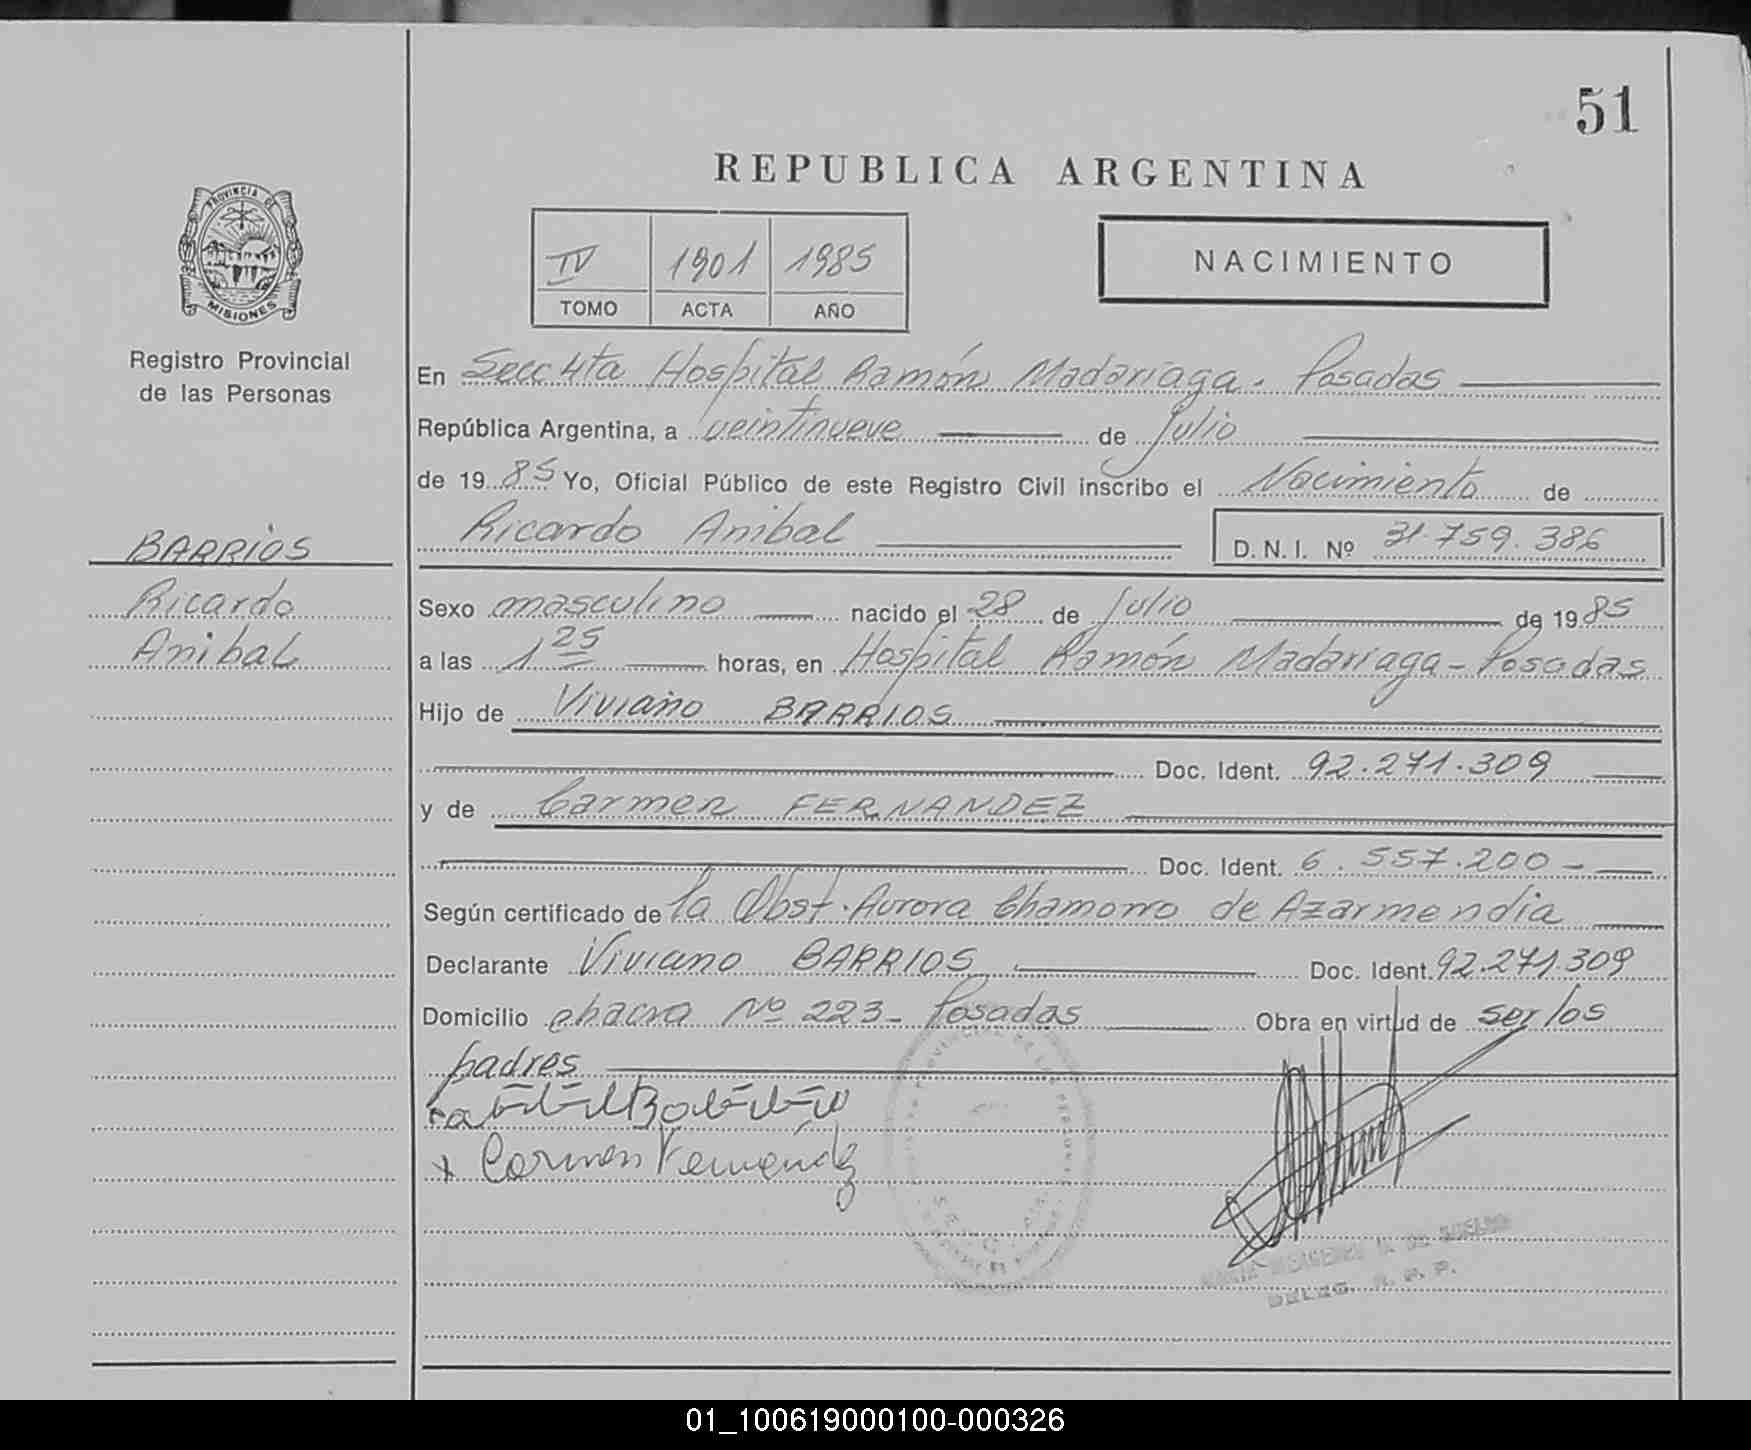 51
REPUBLICA ARGENTINA
PROVINCIA DE
MISIONES
Registro Provincial
de las Personas
IV 1901 1985
TOMO ACTA AÑO
NACIMIENTO
En Secc 4ta Hospital Ramón Madariaga. Posadas
República Argentina, a veintinueve de Julio
de 1985 Yo, Oficial Público de este Registro Civil inscribo el Nacimiento de
Ricardo Anibal D. N. I. Nº 31.759.386
BARRIOS
Ricardo
Anibal
Sexo masculino nacido el 28 de Julio de 1985
a las 1 25 horas, en Hospital Ramón Madariaga - Posadas
Hijo de Viviano BARRIOS
Doc. Ident. 92.271.309
y de Carmen FERNANDEZ
Doc. Ident. 6.557.200 -
Según certificado de la Obst. Aurora Chamorro de Azarmendia
Declarante Viviano BARRIOS Doc. Ident. 92.271.309
Domicilio chacra Nº 223 - Posadas Obra en virtud de ser los
padres
x Carmen Fernández
DELEG. R. P. P.
01_100619000100-000326